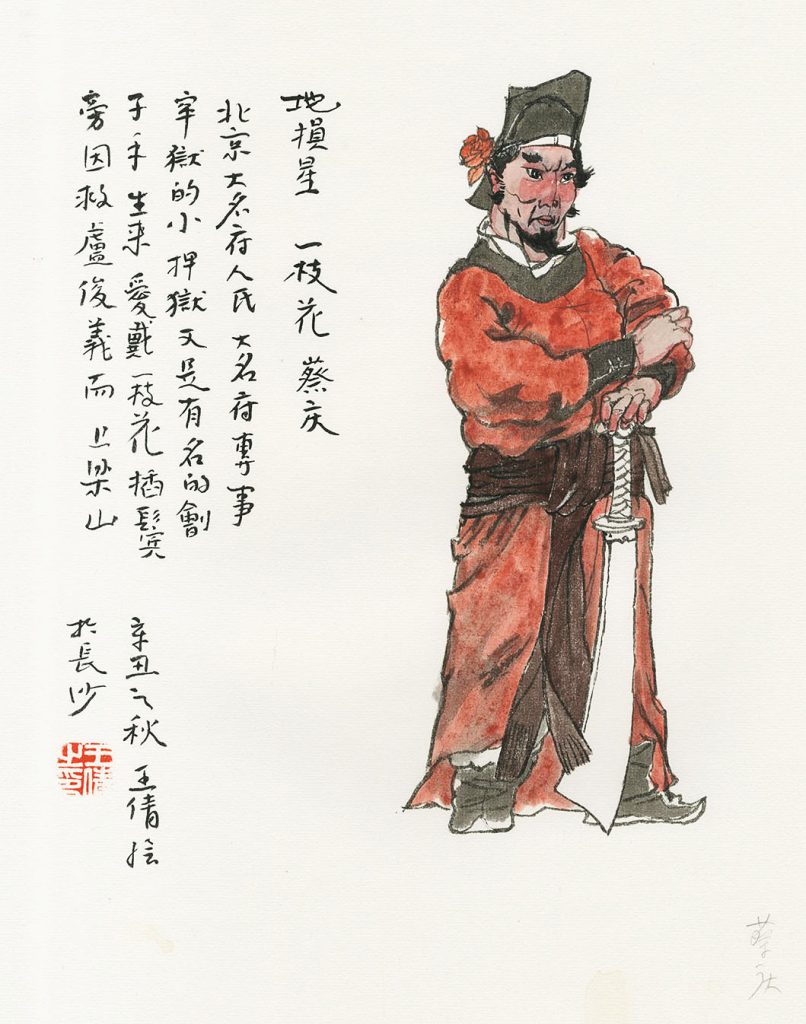 地損星 一枝花 蔡庆
北京大名府人氏 大名府專事
牢獄的小押獄又是有名的劊
子手 生来愛戴一枝花插鬓
旁因救盧俊義而上梁山
辛丑之秋 王倩绘
扵長沙
王倩之印
蔡庆